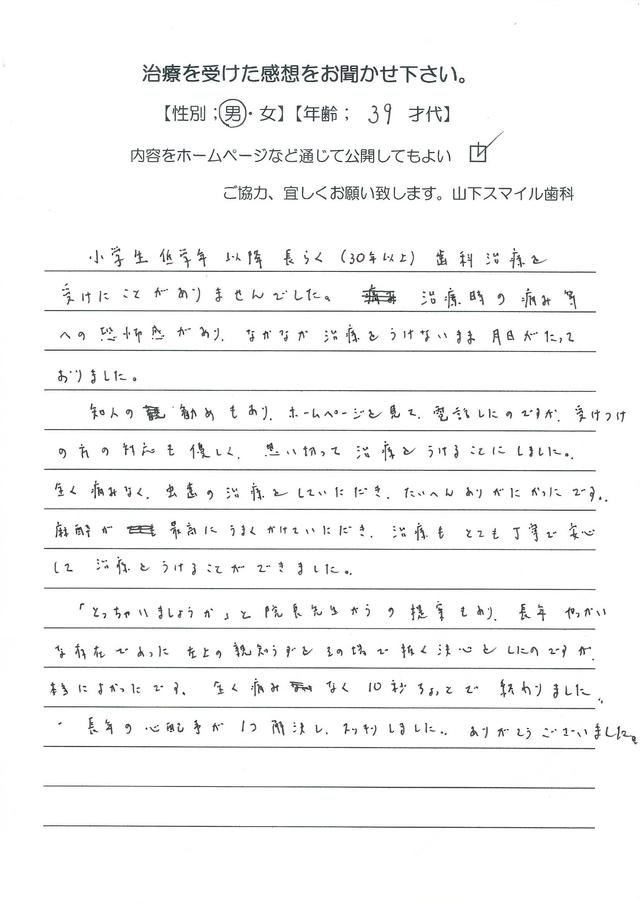 治療を受けた感想をお聞かせ下さい。
【性別;男・女】【年齢; 39 才代】
内容をホームページなど通じて公開してもよい ☑
ご協力、宜しくお願い致します。山下スマイル歯科
小学生低学年以降 長らく(30年以上)歯科治療を
受けたことがありませんでした。 治療時の痛み等
への恐怖感があり、なかなか治療をうけないまま月日がたって
おりました。
知人の勧めもあり、ホームページを見て、電話したのですが、受けつけ
の方の対応も優しく、思い切って治療をうけることにしました。
全く痛みなく、虫歯の治療をしていただき、たいへんありがたかったです。
麻酔が 最高にうまくかけていただき、治療もとても丁寧で安心
して治療をうけることができました。
「とっちゃいましょうか」と院長先生からの提案もあり、長年やっかい
な存在であった左上の親知らずをその場で抜く決心をしたのですが、
本当によかったです。全く痛みなく10秒ちょっとで終わりました。
長年の心配事が1つ解決し、スッキリしました。ありがとうございました。